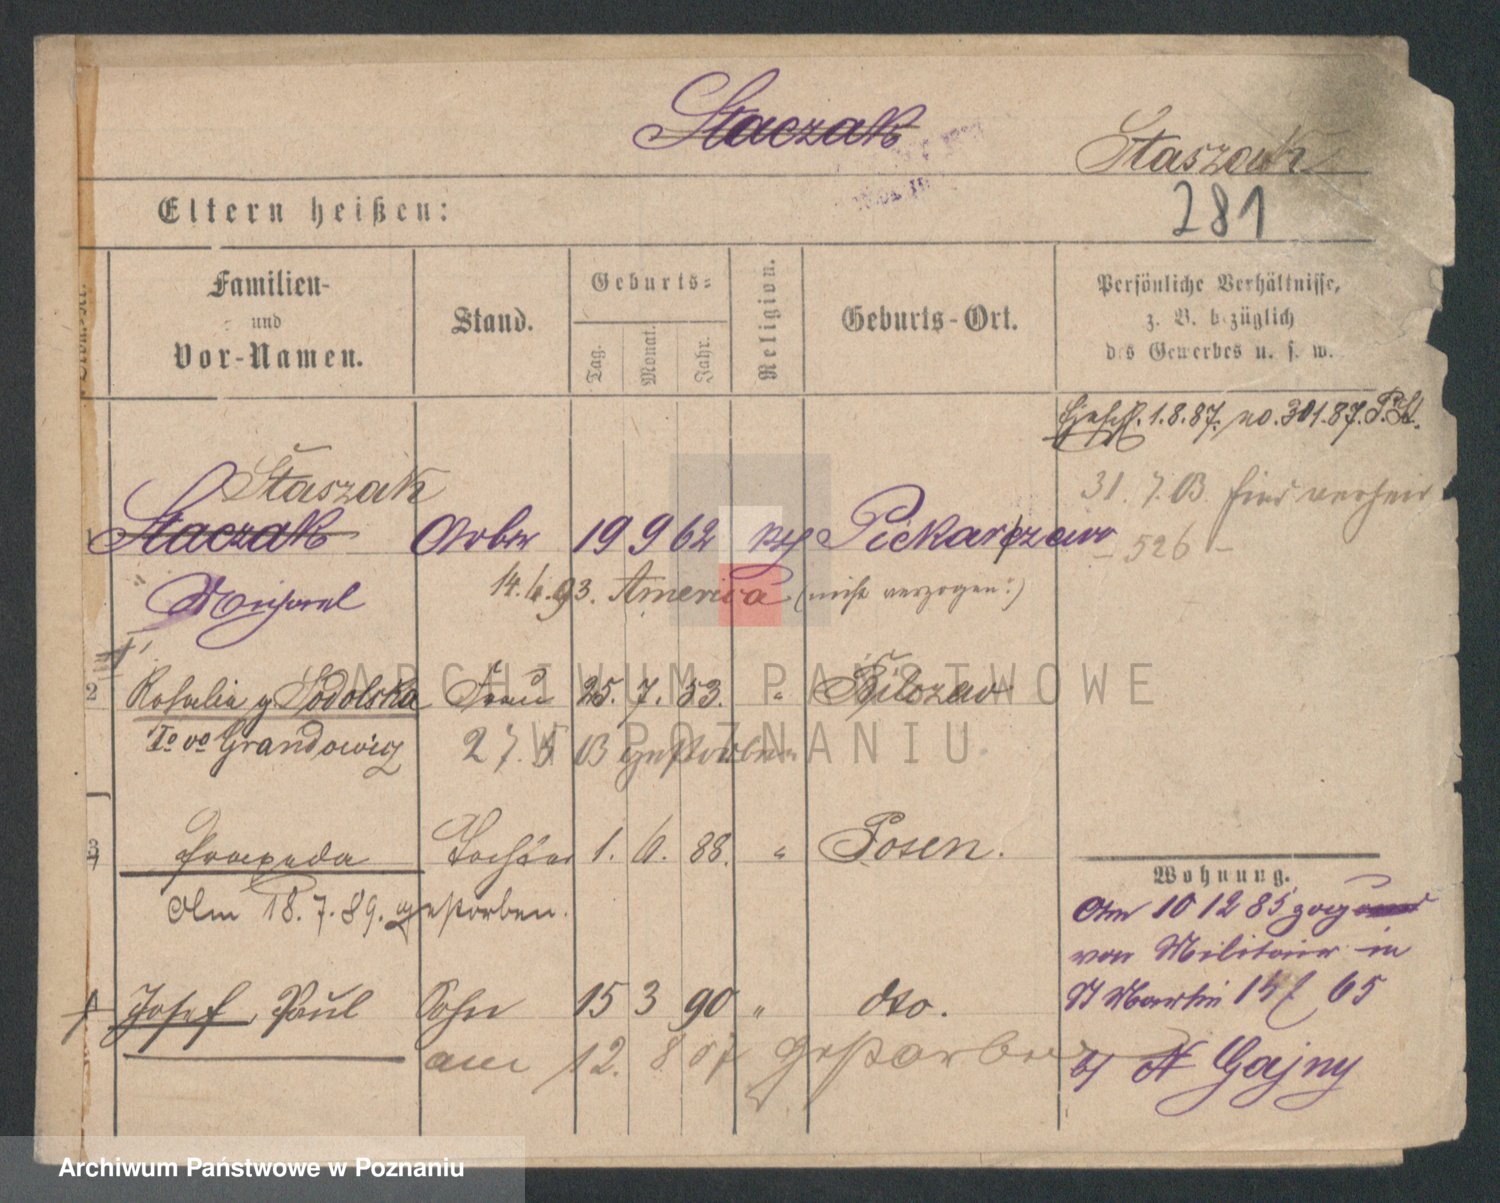 Staczak
Staszak
281
Eltern heißen:
Familien-
und
Vor-Namen.
Stand.
Geburts-
Tag.
Monat.
Jahr.
Religion.
Geburts-Ort.
Persönliche Verhältnisse,
z. B. bezüglich
des Gewerbes u. s. w.
1.8.87. no. 301.87. P. St.
31. 7. 03.
526
Staszak
1 Staczak Arbr 19 9 62 kth Piekarzewo
14. 6. 93. America (nicht verzogen?)
2 Rosalia g Podolska Frau 25. 7. 53. "
Io vo Grandowicz
27. 5 03 gestorben
3 Praxeda Tochter 1. 6. 88. " Posen.
Am 18. 7. 89. gestorben.
4 Josef, Paul Sohn 15 3 90 " dto.
am 12. 8 07 gestorben
Wohnung.
Am 10 12 85 zugez
von Militair in
St Martin 65
b/ Gajny
ARCHIWUM PAŃSTWOWE
W POZNANIU
Archiwum Państwowe w Poznaniu